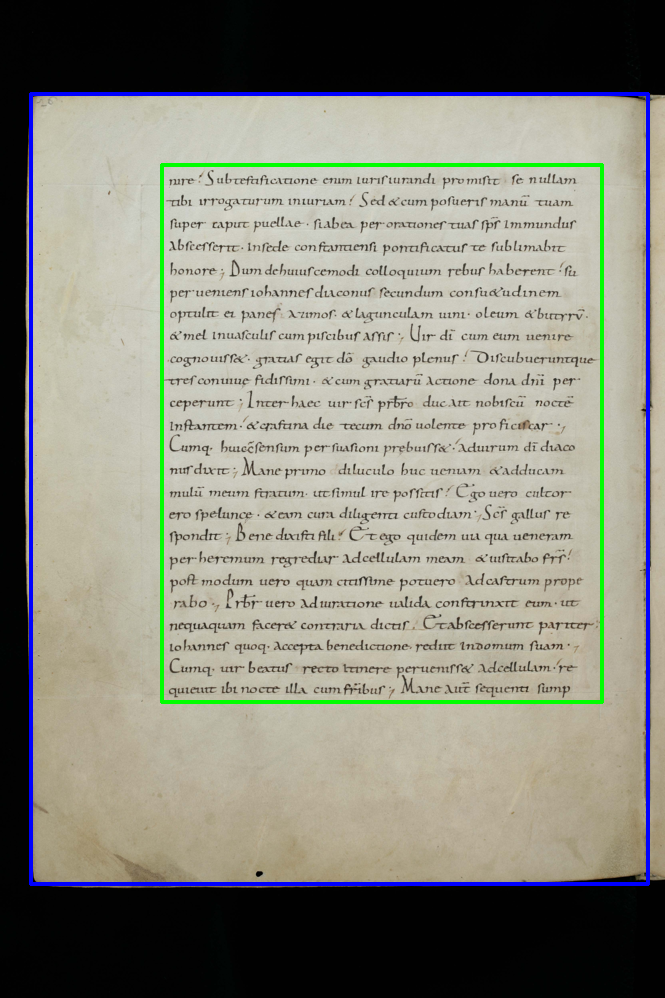 nire; Subtestificatione enim iurisiurandi promisit se nullam
tibi irrogaturum iniuriam; Sed & cum posueris manū tuam
super caput puellae · si ab ea per orationes tuas sp̄s inmundus
Abscesserit · in sede constantiensi pontificatus te sublimabit
honore; Dum dehuiuscemodi colloquium rebus haberent; su
perveniens iohannes diaconus secundum consu&udinem
optulit ei panes azimos · & lagunculam uini · oleum & butyrū ·
& mel inuasculis cum piscibus assis; Uir dī cum eum uenire
cognouiss& · gratias egit dō gaudio plenus; Discubueruntque
tres conuiuę fidissimi · & cum gratiarū Actione dona dn̄i per
ceperunt; Inter haec uir sc̄s pr̄bro duc ait nobiscū nocte
instantem; & crastina die tecum dn̄o uolente proficiscar ·;
Cumq · huic c̄sensum persuasioni prębuiss& · Aduirum dī diaco
nus dixit; Mane primo diluculo huc ueniam & adducam
mulū meum stratum · ut simul ire possitis; Ego uero cultor
ero spelunce · & eam cura diligenti custodiam; Sc̄s gallus re
spondit; Bene dixisti fili; Et ego quidem uia qua ueneram
per heremum regrediar Adcellulam meam & uisitabo fr̄s;
post modum uero quam citissime potuero Adcastrum prope
rabo; Pr̄br uero Adiuratione ualida constrinxit eum · ut
nequaquam facer& contraria dictis; Et abscesserunt pariter;
iohannes quoq · Accepta benedictione rediit indomum suam;
Cumq · uir beatus recto itinere peruenisse& Adcellulam · re
quieuit ibi nocte illa cum fr̄ibus; Mane aut̄ sequenti sump